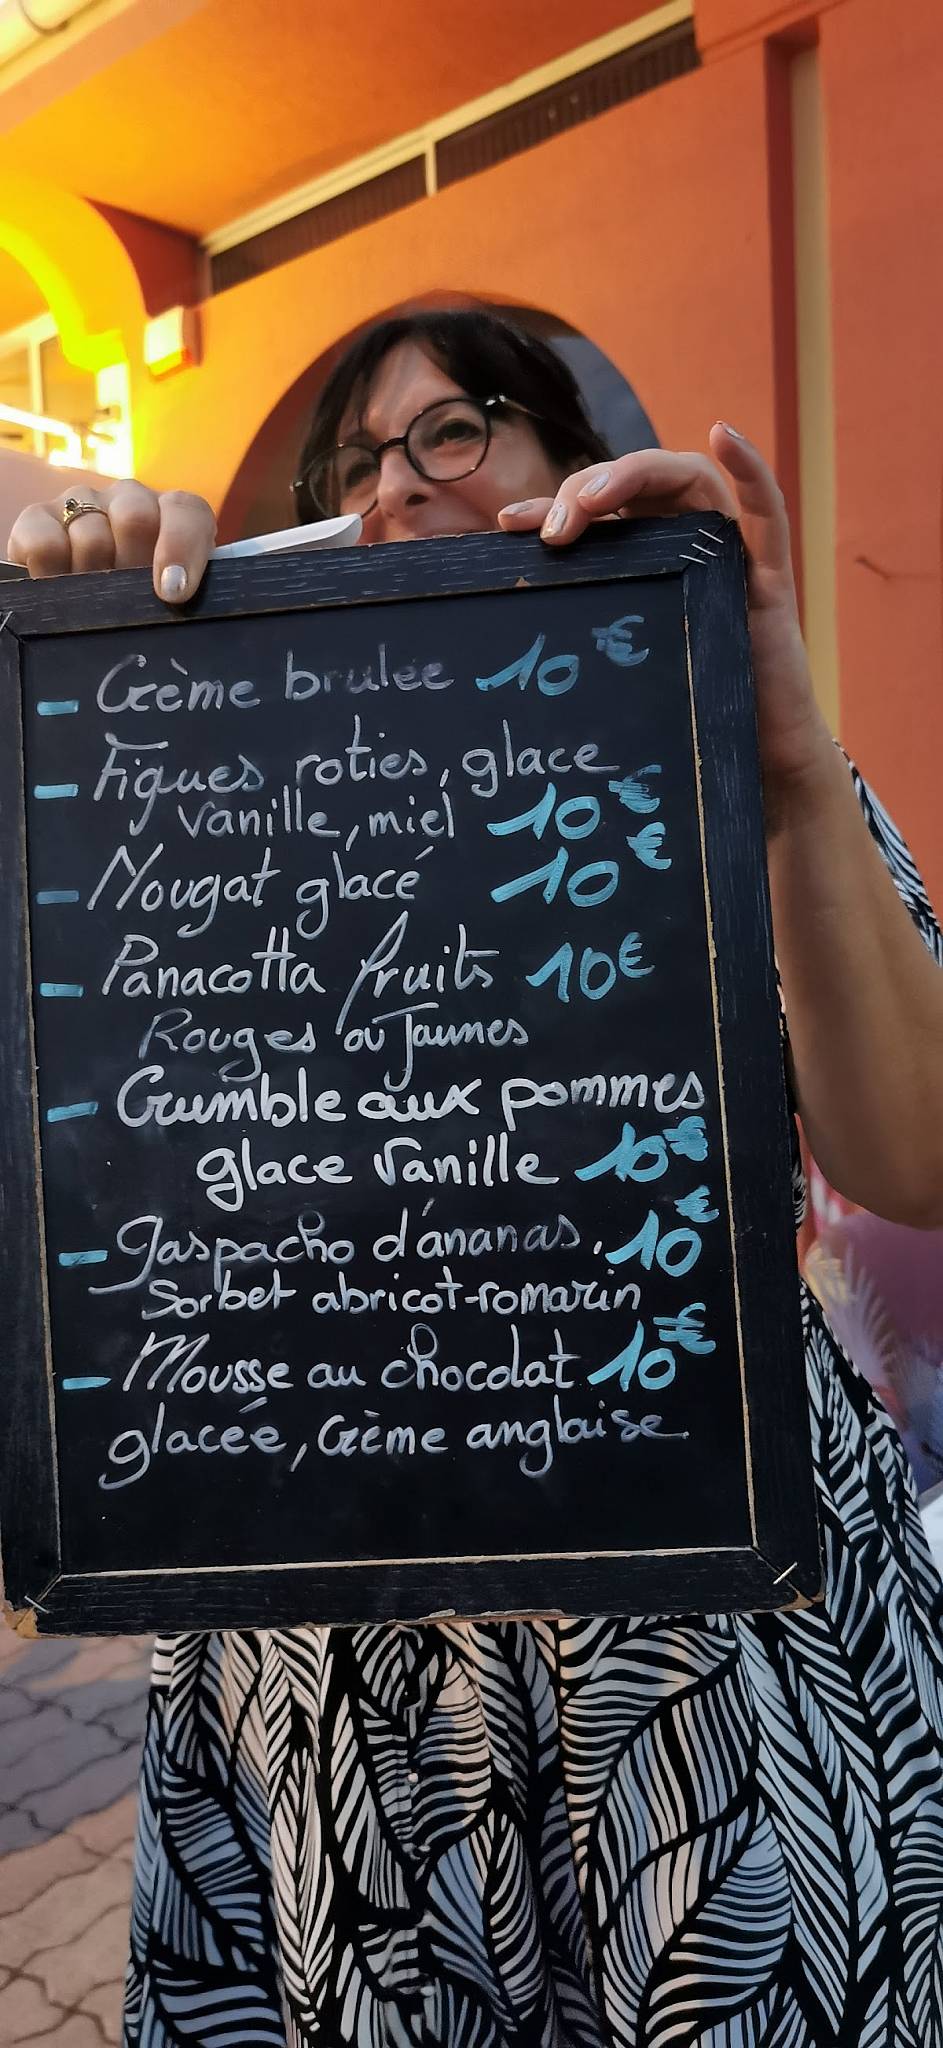 - Crème brulée 10€
- Figues roties, glace
vanille, miel 10€
- Nougat glacé 10€
- Panacotta fruits 10€
Rouges ou Jaunes
- Crumble aux pommes
glace vanille 10€
- gaspacho d'ananas, 10€
Sorbet abricot-romarin
- Mousse au chocolat 10€
glacée, crème anglaise